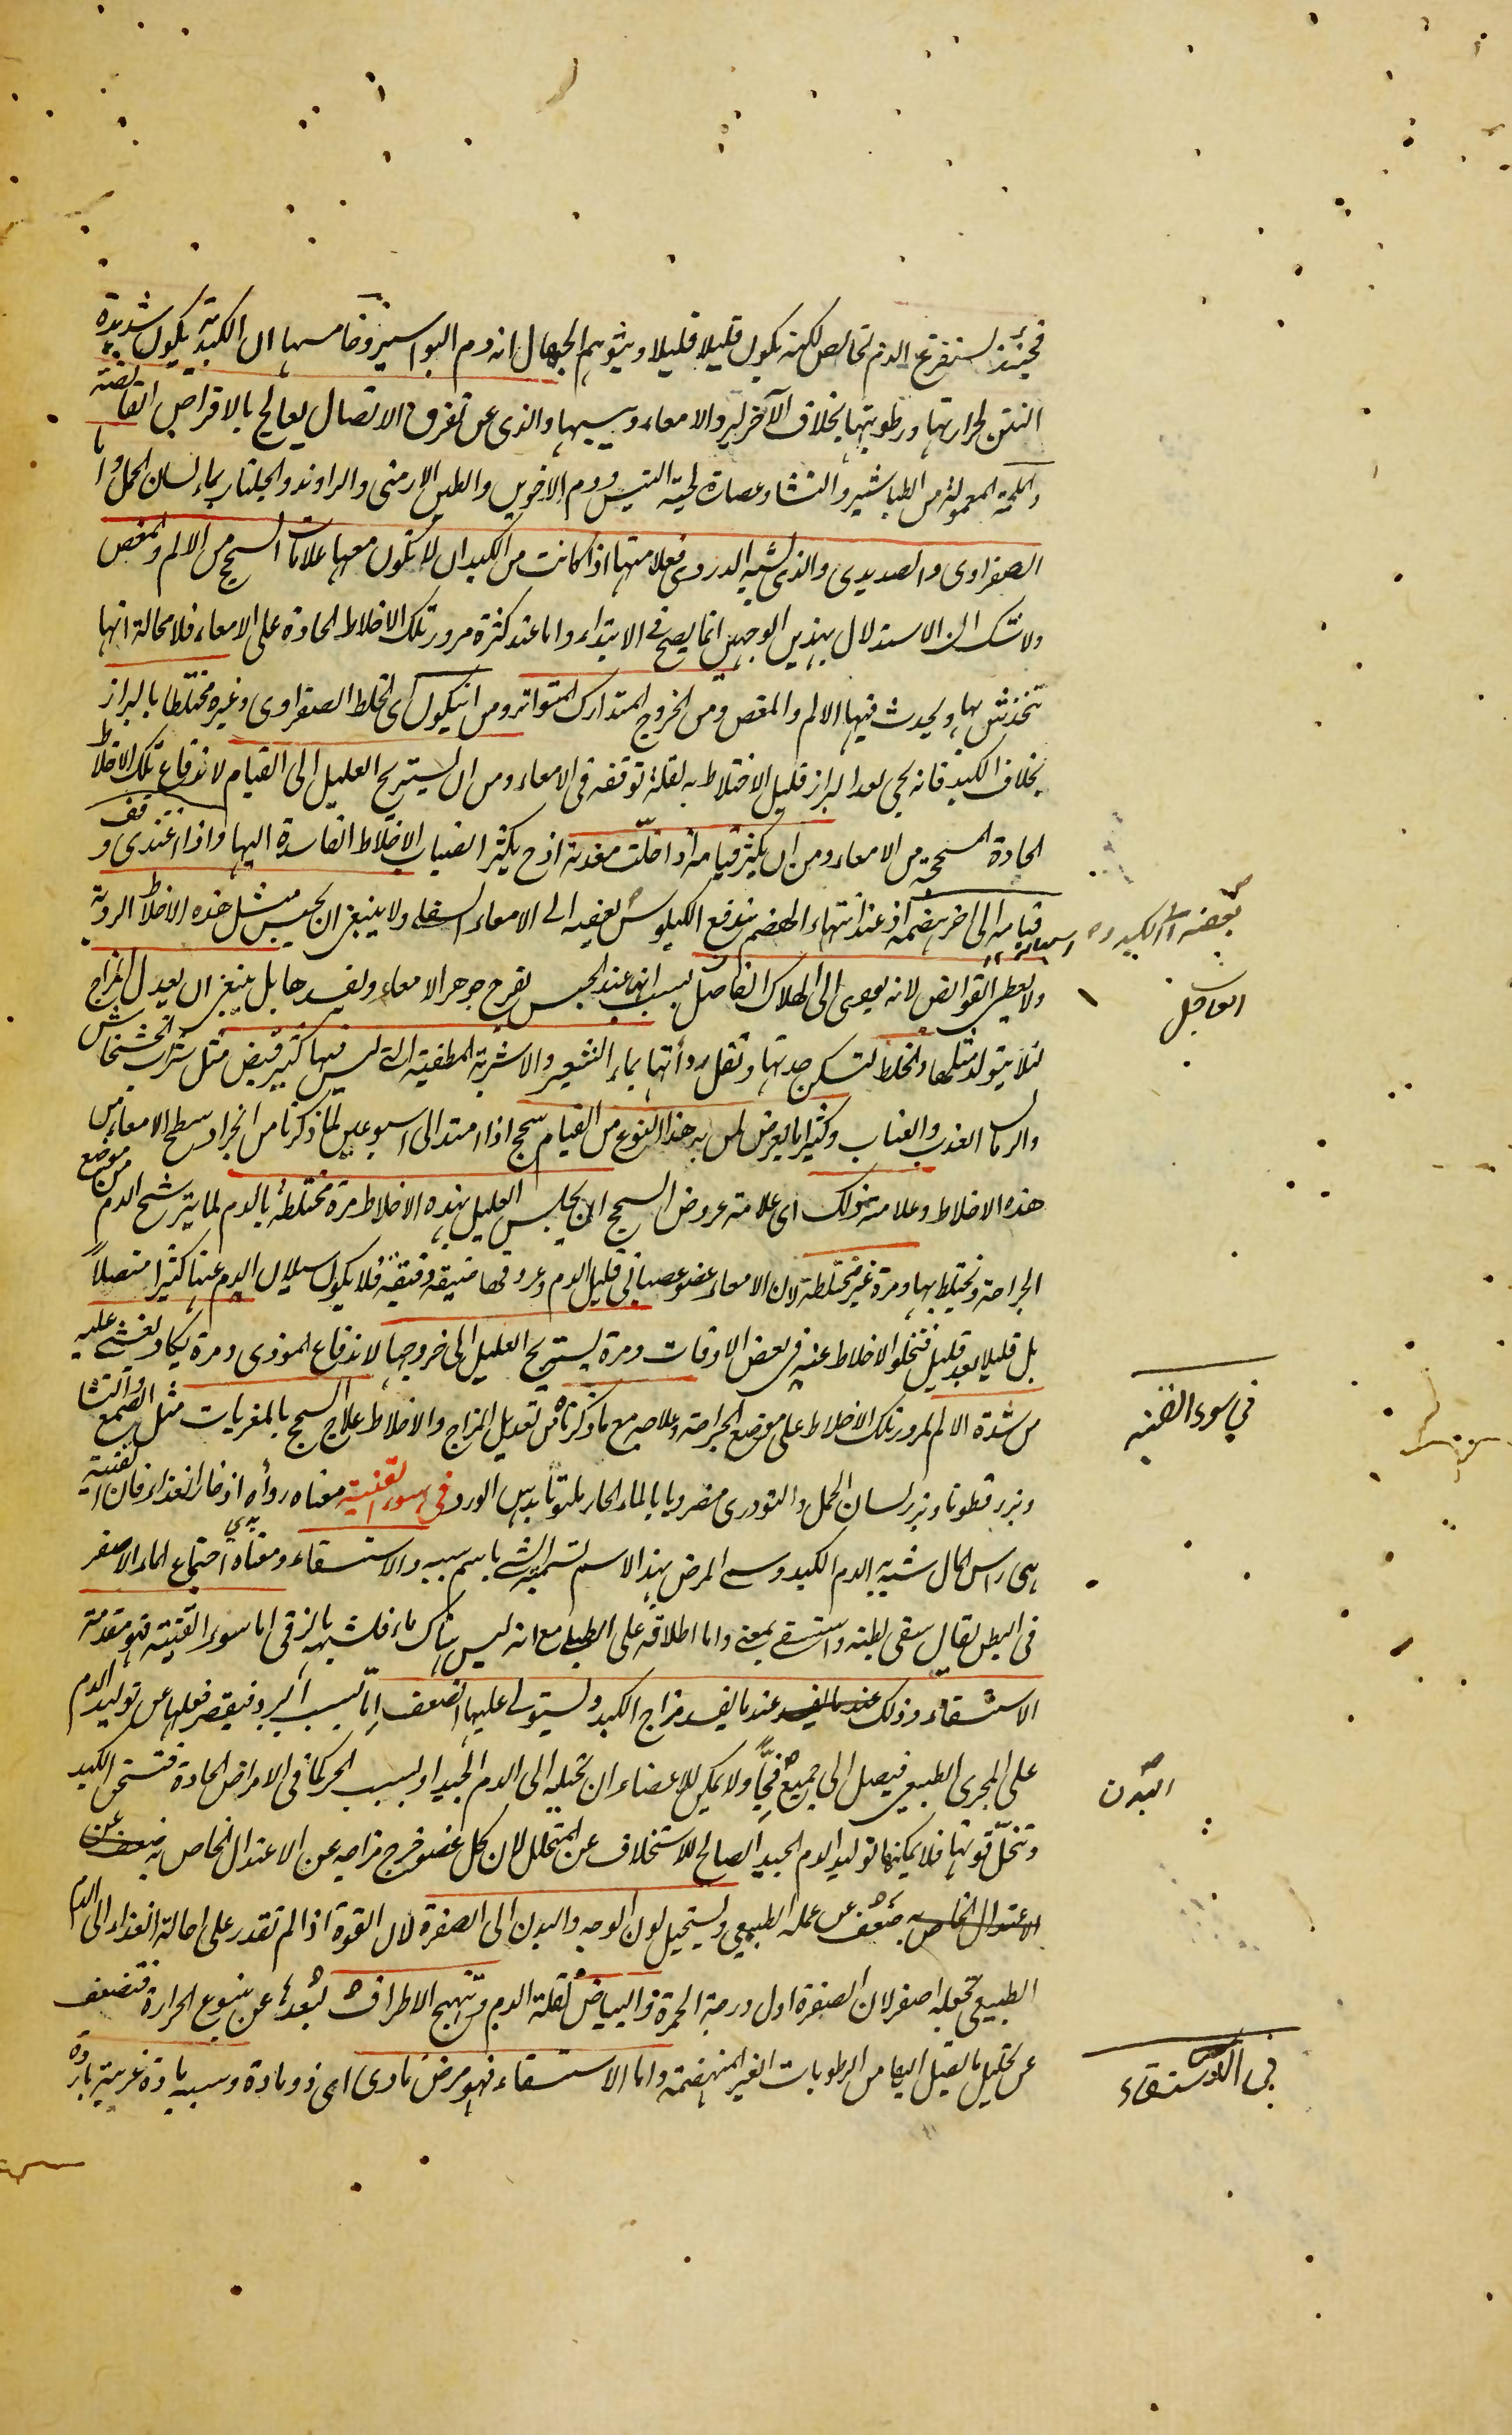 فحينئذ يستفرغ الدم الخالص لكنه يكون قليلا قليلا ويتوهم الجهال انه دم البواسير وخامسها ان الكبدية يكون شديدة
النتن لحرارتها ورطوبتها بخلاف الآخر والامعاء وسببها والذى عن تفرق الاتصال يعالج بالاقراص القابضة
المعمولة من الطباشير والنشا وعصارة لحية التيس ودم الاخوين والطين الارمنى والراوند والجلنار بماء لسان الحمل واما
الصفراوى والصديدى والذى يشبه الدردى فعلامتها اذا كانت من الكبد ان لا تكون معها علامات السحج من الالم والمغص
ولا شك ان الاستدلال بهذين الوجهين انما يصح فى الابتداء واما عند كثرة مرور تلك الاخلاط الحادة على الامعاء فلا محالة انها
تنخدش بها ويحدث فيها الالم والمغص ومن الخروج المتدارك المتواتر ومن ان يكون اى الخلط الصفراوى وغيره مختلطا بالبراز
بخلاف الكبد فانه يجى بعد البراز قليل الاختلاط به لقلة توقفه فى الامعاء ومن ان يستريح العليل الى القيام لاندفاع تلك الاخلاط
الحادة المسحجة من الامعاء ومن ان يكثر قيامه اذا خلت معدته اذ ح يكثر انصباب الاخلاط الفاسدة اليها واذا اغتذى وقف
قيامه الى آخر هضمه اذ عند انتهاء الهضم يندفع الكيلوس بعضه الى الامعاء السفلى ولا ينبغى ان يحبس مثل هذه الاخلاط الردية
بعضه الى الكبد و
ولا يعطى القوابض لانه يودى الى الهلاك العاجل بسبب انها عند الحبس تقرح جوهر الامعاء وتفسدها بل ينبغى ان يعدل المزاج
العاجل
لئلا يتولد مثلها والخلط لتسكن حدتها وتقل ردأتها بماء الشعير والاشربة المطفية التى ليس فيها كثير قبض مثل شراب الخشخاش
والرمان العذب والعناب وكثيرا ما يعرض لمن به هذا النوع من القيام سحج اذا امتد الى اسبوعين لما ذكرنا من انجراد سطح الامعاء من
هذه الاخلاط وعلامة ذلك اى علامة عروض السحج ان يجلس العليل بهذه الاخلاط مرة مختلطة بالدم لما يترشح الدم من موضع
الجراحة ويختلط بها ومرة غير مختلطة لان الامعاء عضو عصبانى قليل الدم وعروقها ضيقة دقيقة فلا يكون سيلان الدم عنها كثيرا متصلا
بل قليلا بعد قليل فتخلو الاخلاط عنه فى بعض الاوقات ومرة يستريح العليل الى خروجها لاندفاع الموذى ومرة يكاد يغشى عليه
من شدة الالم لمرور تلك الاخلاط على موضع الجراحة وعلاجه مع ما ذكرناه من تعديل المزاج والاخلاط علاج السحج بالمغريات مثل الصمغ والنشا
وبزر قطونا وبزر لسان الحمل والتودرى مضروبا بالماء الحار ملتوتا بدهن الورد فى سوء القنية معناه ردأه اذخار الغذاء فان القنية
فى سوء القنيه
هى راس المال شبه به الدم الكبد وسمى المرض بهذا الاسم تسمية الشى باسم سببه والاستسقاء ومعناه اجتماع الماء الاصفر
فى البطن يقال سقى بطنه واستسقى بمعنى واما اطلاقه على الطبلى مع انه ليس هناك ماء فلشبهه بالزقى اما سوء القنية فهو مقدمة
الاستسقاء وذلك عندما يفسد مزاج الكبد ويستولى عليها الضعف اما بسبب البرد فيقصر فعلها عن توليد الدم
على المجرى الطبيعى فيصل الى جميع فجا ولا يمكن للاعضاء ان تحيله الى الدم الجيد او بسبب الحر كما فى الامراض الحادة فتسخن الكبد
البدن
وتنحل قوتها فلا يمكنها توليد الدم الجيد الصالح للاستخلاف عن المتحلل لان كل عضو خرج مزاجه عن الاعتدال الخاص به ضعف عن
الاعتدال الخاص به ضعف عن عمله الطبيعى ويستحيل لون الوجه والبدن الى الصفرة لان القوة اذا لم تقدر على احالة الغذاء الى الدم
الطبيعى تجعله اصفر لان الصفرة اول درجة الحمرة والبياض لقلة الدم وتتهيج الاطراف لبعدها عن ينبوع الحرارة فتضعف
عن تحليل ما يصل اليها من الرطوبات الغير المنهضمة واما الاستسقاء فهو مرض مادى اى ذو مادة وسببه مادة غريبة باردة
فى الاستسقاء